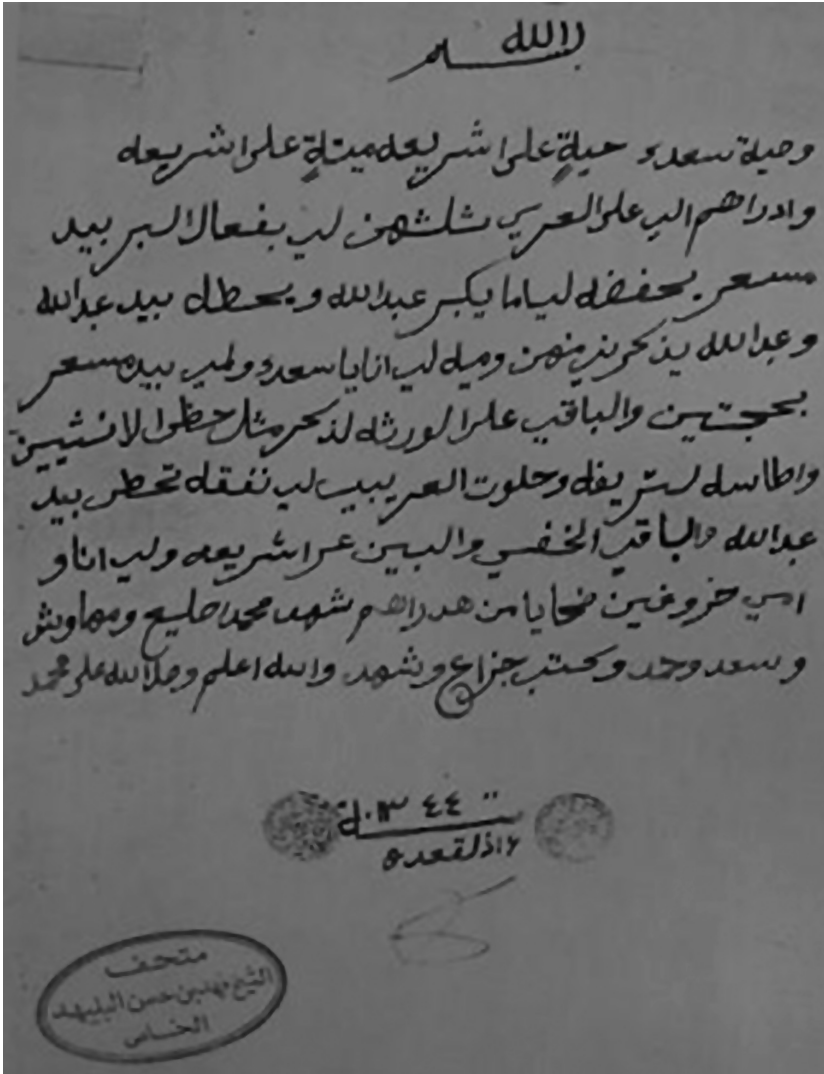 بسم الله
وصية سعدى حيةٍ على اشريعه ميتةٍ على اشريعه
وادراهم الي على العريني ثلثهن لي بفعال البر بيد
مسعر يحفضه لياما يكبر عبدالله ويحطله بيد عبدالله
وعبدالله يذكرني منهن وميه لي انا يا سعدى ولمي بيد مسعر
بحجتين والباقي على الورثه لذكر مثل حظ الانثيين
واطاسه لشريفه وحلوت العريبي لي نفقه تحطر بيد
عبدالله والباقي الخفسي والبين عر اشريعه ولي انا و
امي خروفين ضحايا من هدراهم شهد محمد اصليع ومهاوش
وسعد وحمد وكتب جزاع وشهد والله اعلم وصلا الله على محمد
١٣٤٤
١٦ ذلقعده
متحف
الشيخ فهد بن حسن البليهد
الخاص